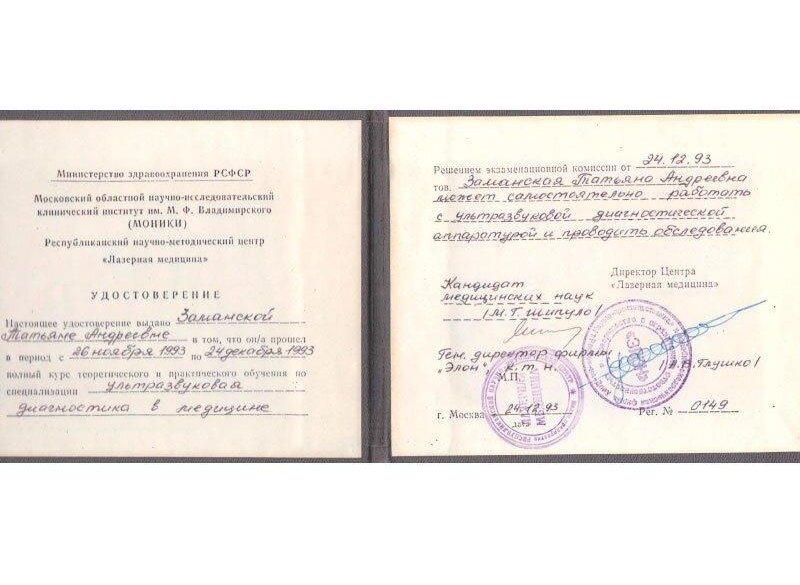 Министерство здравоохранения РСФСР
Московский областной научно-исследовательский
клинический институт им. М. Ф. Владимирского
(МОНИКИ)
Республиканский научно-методический центр
«Лазерная медицина»
УДОСТОВЕРЕНИЕ
Настоящее удостоверение выдано Заманской
Татьяне Андреевне в том, что он/а прошел
в период с 26 ноября 1993 по 24 декабря 1993
полный курс теоретического и практического обучения по
специализации ультразвуковая
диагностика в медицине
Решением экзаменационной комиссии от 24.12.93
тов. Заманская Татьяна Андреевна
может самостоятельно работать
с ультразвуковой диагностической
аппаратурой и проводить обследования.
Кандидат
медицинских наук
/М.Г. Шипуло/
Директор Центра
«Лазерная медицина»
Ген. директор фирмы
"Элон" к.т.н.
/А.В. Глушко/
М.П.
г. Москва 24.12.93
дата
Рег. № 0149